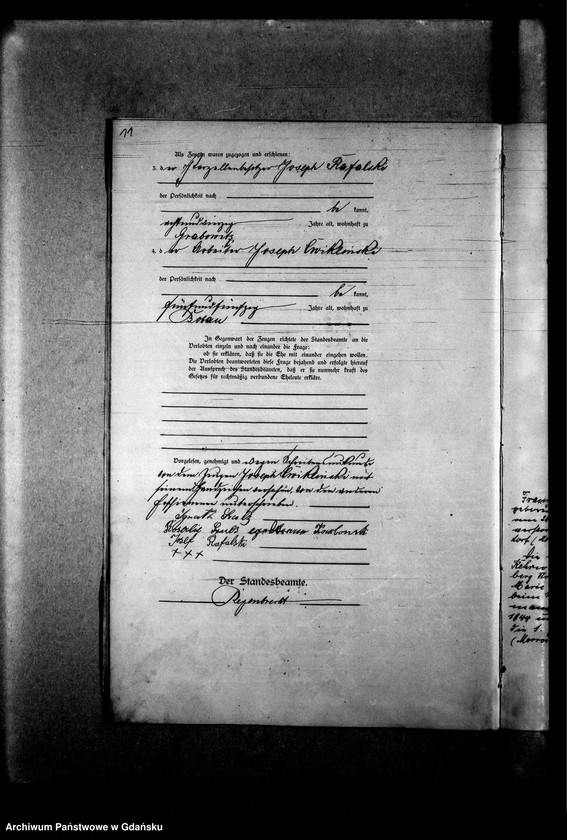 11
Als Zeugen waren zugezogen und erschienen:
3. der Parzellenbesitzer Joseph Rafalski
der Persönlichkeit nach
be kannt,
achtundvierzig Jahre alt, wohnhaft zu
Grabowitz
4. der Arbeiter Joseph Cwiklinski
der Persönlichkeit nach
be kannt,
fünfundfünfzig Jahre alt, wohnhaft zu
In Gegenwart der Zeugen richtete der Standesbeamte an die
Verlobten einzeln und nach einander die Frage:
ob sie erklären, daß sie die Ehe mit einander eingehen wollen.
Die Verlobten beantworteten diese Frage bejahend und erfolgte hierauf
der Ausspruch des Standesbeamten, daß er sie nunmehr kraft des
Gesetzes für rechtmäßig verbundene Eheleute erkläre.
Vorgelesen, genehmigt und wegen Schreibensunkunde
von dem Zeugen Joseph Cwiklinski mit
seinem Handzeichen versehen, von den anderen
Erschienenen unterschrieben.
Ignatz
Rosalie
Josef Rafalski
+ + +
Der Standesbeamte.
Archiwum Państwowe w Gdańsku